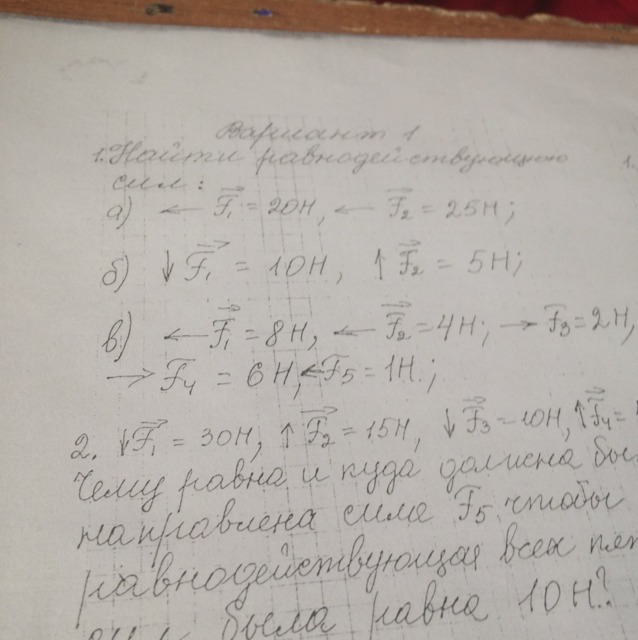 Вариант 1
1. Найти равнодействующую
сил:
а) ← F₁ = 20Н, ← F₂ = 25Н;
б) ↓ F₁ = 10Н, ↑ F₂ = 5Н;
в) ← F₁ = 8Н, ← F₂ = 4Н; → F₃ = 2Н,
→ F₄ = 6Н, ← F₅ = 1Н.;
2. ↓ F₁ = 30Н, ↑ F₂ = 15Н, ↓ F₃ = 10Н, ↑ F₄ =
Чему равна и куда должна
направлена сила F₅ чтобы
равнодействующая всех
была равна 10Н?
1.